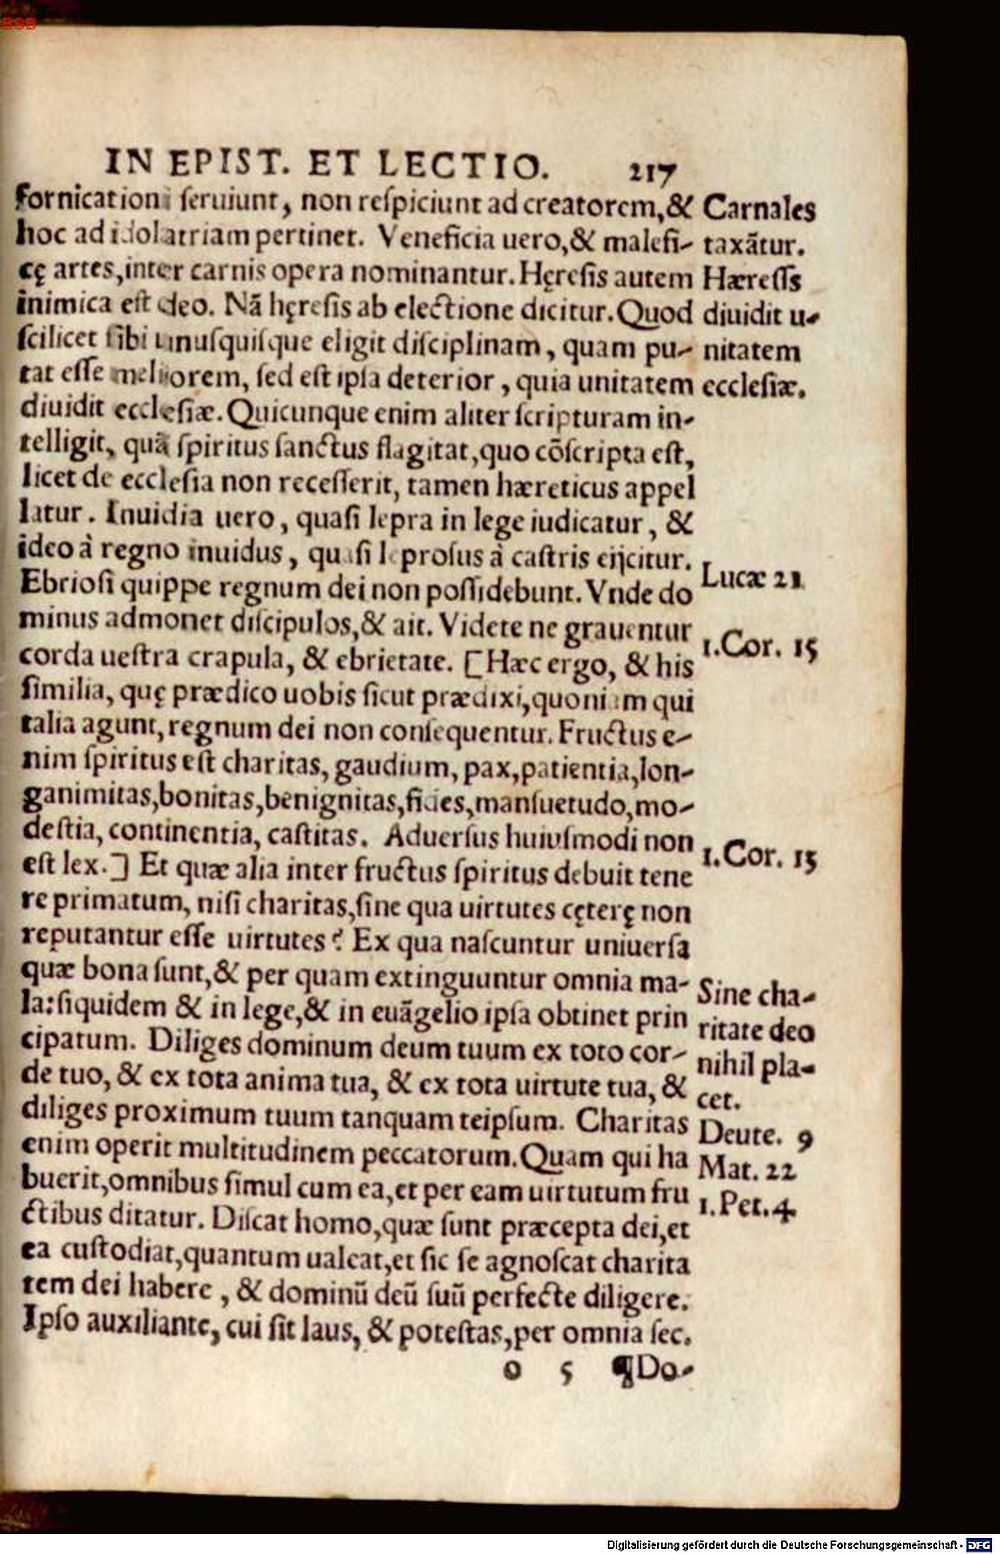 IN EPIST. ET LECTIO. 217
fornicationi ſeruiunt, non reſpiciunt ad creatorem, &
hoc ad idolatriam pertinet. Veneficia uero, & malefi-
cę artes, inter carnis opera nominantur. Hęreſis autem
inimica eſt deo. Nã hęreſis ab electione dicitur. Quod
ſcilicet ſibi unuſquiſque eligit diſciplinam, quam pu-
tat eſſe meliorem, ſed eſt ipſa deterior, quia unitatem
diuidit eccleſiæ. Quicunque enim aliter ſcripturam in-
telligit, quã ſpiritus ſanctus flagitat, quo cõſcripta eſt,
licet de eccleſia non receſſerit, tamen hæreticus appel
latur. Inuidia uero, quaſi lepra in lege iudicatur, &
ideo à regno inuidus, quaſi leproſus à caſtris eijcitur.
Ebrioſi quippe regnum dei non poſſidebunt. Vnde do
minus admonet diſcipulos, & ait. Videte ne grauentur
corda ueſtra crapula, & ebrietate. [Hæc ergo, & his
ſimilia, quę prædico uobis ſicut prædixi, quoniam qui
talia agunt, regnum dei non conſequentur. Fructus e-
nim ſpiritus eſt charitas, gaudium, pax, patientia, lon-
ganimitas, bonitas, benignitas, fides, manſuetudo, mo-
deſtia, continentia, caſtitas. Aduerſus huiuſmodi non
eſt lex.] Et quæ alia inter fructus ſpiritus debuit tene
re primatum, niſi charitas, ſine qua uirtutes cęterę non
reputantur eſſe uirtutes? Ex qua naſcuntur uniuerſa
quæ bona ſunt, & per quam extinguuntur omnia ma-
la: ſiquidem & in lege, & in euãgelio ipſa obtinet prin
cipatum. Diliges dominum deum tuum ex toto cor-
de tuo, & ex tota anima tua, & ex tota uirtute tua, &
diliges proximum tuum tanquam teipſum. Charitas
enim operit multitudinem peccatorum. Quam qui ha
buerit, omnibus ſimul cum ea, et per eam uirtutum fru
ctibus ditatur. Diſcat homo, quæ ſunt præcepta dei, et
ea cuſtodiat, quantum ualeat, et ſic ſe agnoſcat charita
tem dei habere, & dominũ deũ ſuũ perfecte diligere.
Ipſo auxiliante, cui ſit laus, & poteſtas, per omnia ſec.
o 5 ¶Do-
Carnales
taxãtur.
Hæreſis
diuidit u-
nitatem
eccleſiæ.
Lucæ 21
1. Cor. 15
1. Cor. 15
Sine cha-
ritate deo
nihil pla-
cet.
Deute. 9
Mat. 22
1. Pet. 4
Digitalisierung gefördert durch die Deutsche Forschungsgemeinschaft - DFG